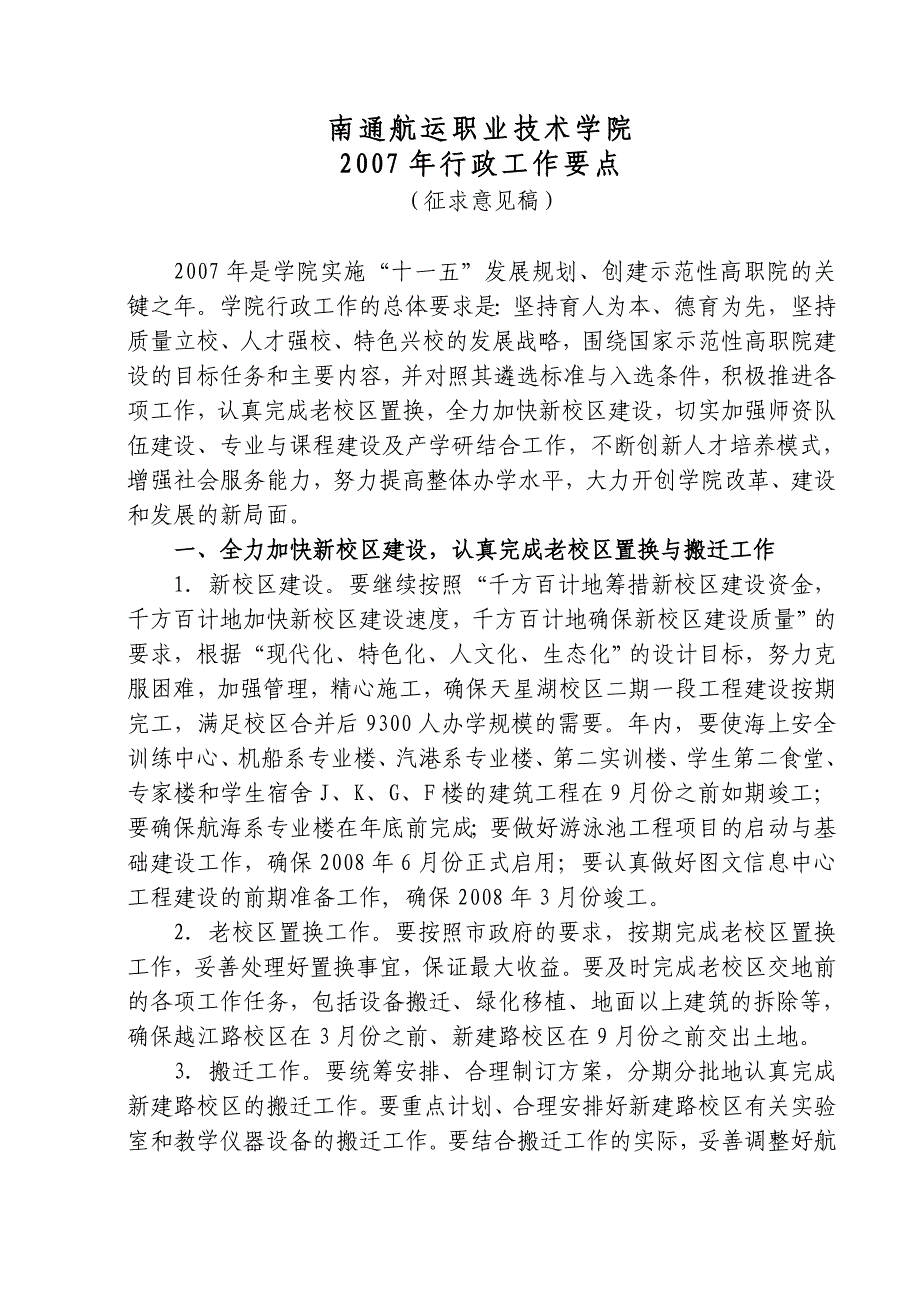 南通航运职业技术学院
2007年行政工作要点
（征求意见稿）
2007年是学院实施“十一五”发展规划、创建示范性高职院的关
键之年。学院行政工作的总体要求是：坚持育人为本、德育为先，坚持
质量立校、人才强校、特色兴校的发展战略，围绕国家示范性高职院建
设的目标任务和主要内容，并对照其遴选标准与入选条件，积极推进各
项工作，认真完成老校区置换，全力加快新校区建设，切实加强师资队
伍建设、专业与课程建设及产学研结合工作，不断创新人才培养模式，
增强社会服务能力，努力提高整体办学水平，大力开创学院改革、建设
和发展的新局面。
一、全力加快新校区建设，认真完成老校区置换与搬迁工作
1．新校区建设。要继续按照“千方百计地筹措新校区建设资金，
千方百计地加快新校区建设速度，千方百计地确保新校区建设质量”的
要求，根据“现代化、特色化、人文化、生态化”的设计目标，努力克
服困难，加强管理，精心施工，确保天星湖校区二期一段工程建设按期
完工，满足校区合并后9300人办学规模的需要。年内，要使海上安全
训练中心、机船系专业楼、汽港系专业楼、第二实训楼、学生第二食堂、
专家楼和学生宿舍J、K、G、F楼的建筑工程在9月份之前如期竣工；
要确保航海系专业楼在年底前完成；要做好游泳池工程项目的启动与基
础建设工作，确保2008年6月份正式启用；要认真做好图文信息中心
工程建设的前期准备工作，确保2008年3月份竣工。
2．老校区置换工作。要按照市政府的要求，按期完成老校区置换
工作，妥善处理好置换事宜，保证最大收益。要及时完成老校区交地前
的各项工作任务，包括设备搬迁、绿化移植、地面以上建筑的拆除等，
确保越江路校区在3月份之前、新建路校区在9月份之前交出土地。
3．搬迁工作。要统筹安排、合理制订方案，分期分批地认真完成
新建路校区的搬迁工作。要重点计划、合理安排好新建路校区有关实验
室和教学仪器设备的搬迁工作。要结合搬迁工作的实际，妥善调整好航